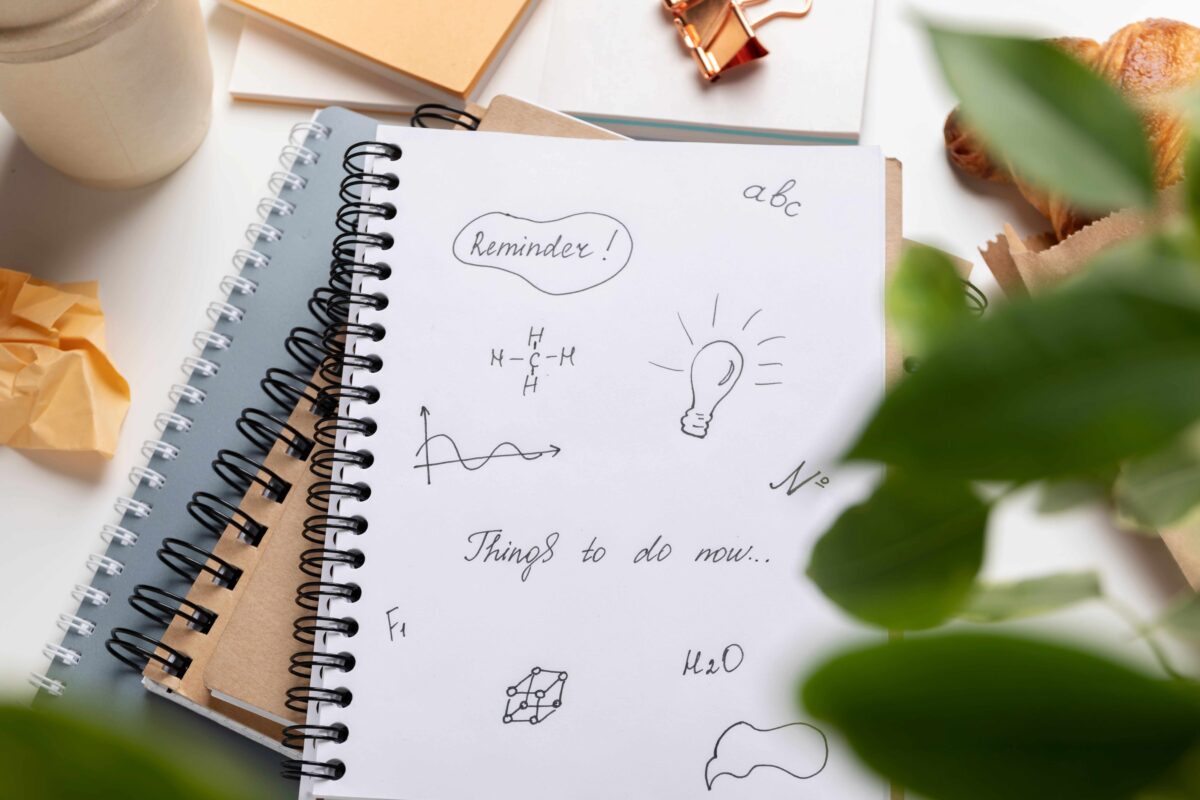 abc
Reminder!
H
H-C-H
H
№
Things to do now...
F1
H2O